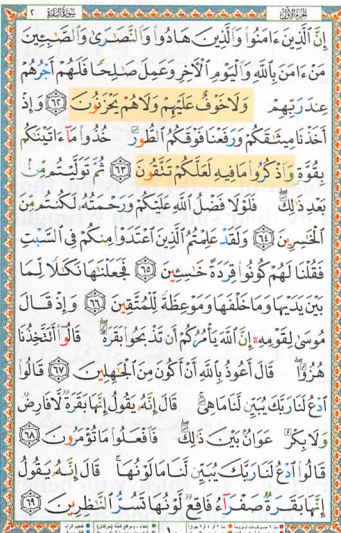 الجُزْءُ الأَوَّلُ سُورَةُ البَقَرَةِ ٢
إِنَّ ٱلَّذِينَ ءَامَنُوا۟ وَٱلَّذِينَ هَادُوا۟ وَٱلنَّصَـٰرَىٰ وَٱلصَّـٰبِـِٔينَ
مَنْ ءَامَنَ بِٱللَّهِ وَٱلْيَوْمِ ٱلْـَٔاخِرِ وَعَمِلَ صَـٰلِحًا فَلَهُمْ أَجْرُهُمْ
عِندَ رَبِّهِمْ وَلَا خَوْفٌ عَلَيْهِمْ وَلَا هُمْ يَحْزَنُونَ ٦٢ وَإِذْ
أَخَذْنَا مِيثَـٰقَكُمْ وَرَفَعْنَا فَوْقَكُمُ ٱلطُّورَ خُذُوا۟ مَآ ءَاتَيْنَـٰكُم
بِقُوَّةٍ وَٱذْكُرُوا۟ مَا فِيهِ لَعَلَّكُمْ تَتَّقُونَ ٦٣ ثُمَّ تَوَلَّيْتُم مِّنۢ
بَعْدِ ذَٰلِكَ ۖ فَلَوْلَا فَضْلُ ٱللَّهِ عَلَيْكُمْ وَرَحْمَتُهُۥ لَكُنتُم مِّنَ
ٱلْخَـٰسِرِينَ ٦٤ وَلَقَدْ عَلِمْتُمُ ٱلَّذِينَ ٱعْتَدَوْا۟ مِنكُمْ فِى ٱلسَّبْتِ
فَقُلْنَا لَهُمْ كُونُوا۟ قِرَدَةً خَـٰسِـِٔينَ ٦٥ فَجَعَلْنَـٰهَا نَكَـٰلًا لِّمَا
بَيْنَ يَدَيْهَا وَمَا خَلْفَهَا وَمَوْعِظَةً لِّلْمُتَّقِينَ ٦٦ وَإِذْ قَالَ
مُوسَىٰ لِقَوْمِهِۦٓ إِنَّ ٱللَّهَ يَأْمُرُكُمْ أَن تَذْبَحُوا۟ بَقَرَةً ۖ قَالُوٓا۟ أَتَتَّخِذُنَا
هُزُوًا ۖ قَالَ أَعُوذُ بِٱللَّهِ أَنْ أَكُونَ مِنَ ٱلْجَـٰهِلِينَ ٦٧ قَالُوا۟
ٱدْعُ لَنَا رَبَّكَ يُبَيِّن لَّنَا مَا هِىَ ۚ قَالَ إِنَّهُۥ يَقُولُ إِنَّهَا بَقَرَةٌ لَّا فَارِضٌ
وَلَا بِكْرٌ عَوَانٌۢ بَيْنَ ذَٰلِكَ ۖ فَٱفْعَلُوا۟ مَا تُؤْمَرُونَ ٦٨
قَالُوا۟ ٱدْعُ لَنَا رَبَّكَ يُبَيِّن لَّنَا مَا لَوْنُهَا ۚ قَالَ إِنَّهُۥ يَقُولُ
إِنَّهَا بَقَرَةٌ صَفْرَآءُ فَاقِعٌ لَّوْنُهَا تَسُرُّ ٱلنَّـٰظِرِينَ ٦٩